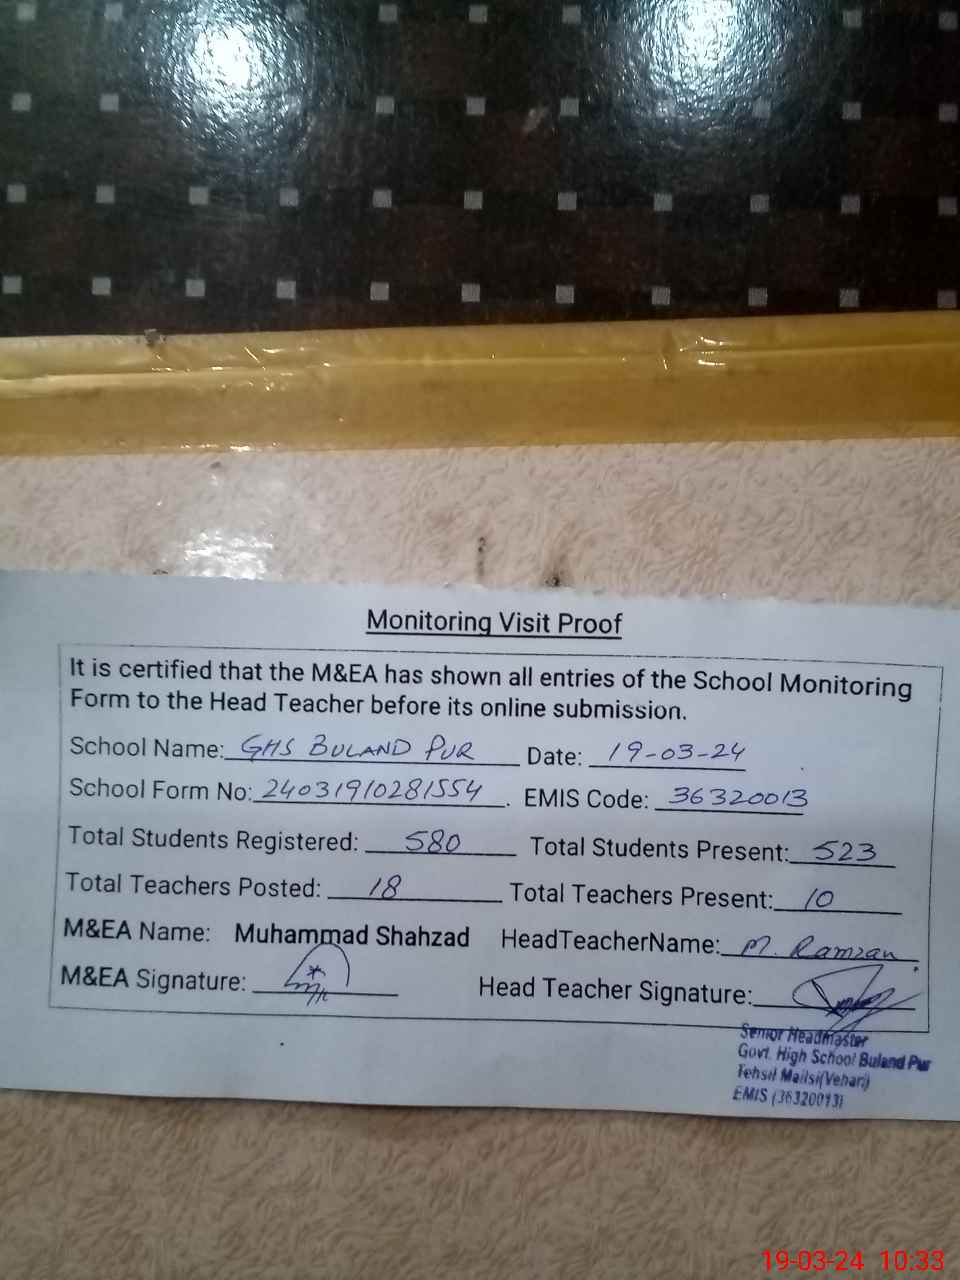 Monitoring Visit Proof
It is certified that the M&EA has shown all entries of the School Monitoring
Form to the Head Teacher before its online submission.
School Name: GHS BULAND PUR Date: 19-03-24
School Form No: 24031910281554. EMIS Code: 36320013
Total Students Registered: 580 Total Students Present: 523
Total Teachers Posted: 18 Total Teachers Present: 10
M&EA Name: Muhammad Shahzad HeadTeacherName: M. Ramzan
M&EA Signature: Head Teacher Signature:
Senior Headmaster
Govt. High School Buland Pur
Tehsil Mailsi(Vehari)
EMIS (36320013)
19-03-24 10:33